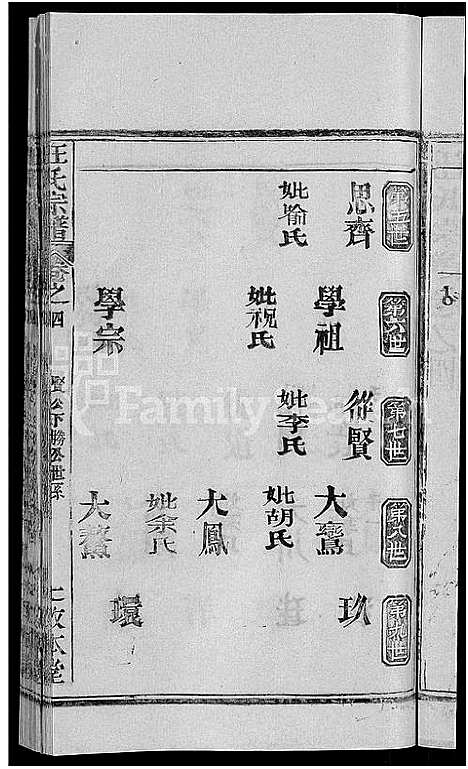 第五世
第六世
第七世
第八世
第九世
思齊
妣喻氏
學祖
妣祝氏
學宗
從賢
妣李氏
大鸞
妣胡氏
大鳳
妣余氏
大鰲
玖
環
汪氏宗譜
卷之一四
賢公下勝公世系
敦本堂
FamilySearch